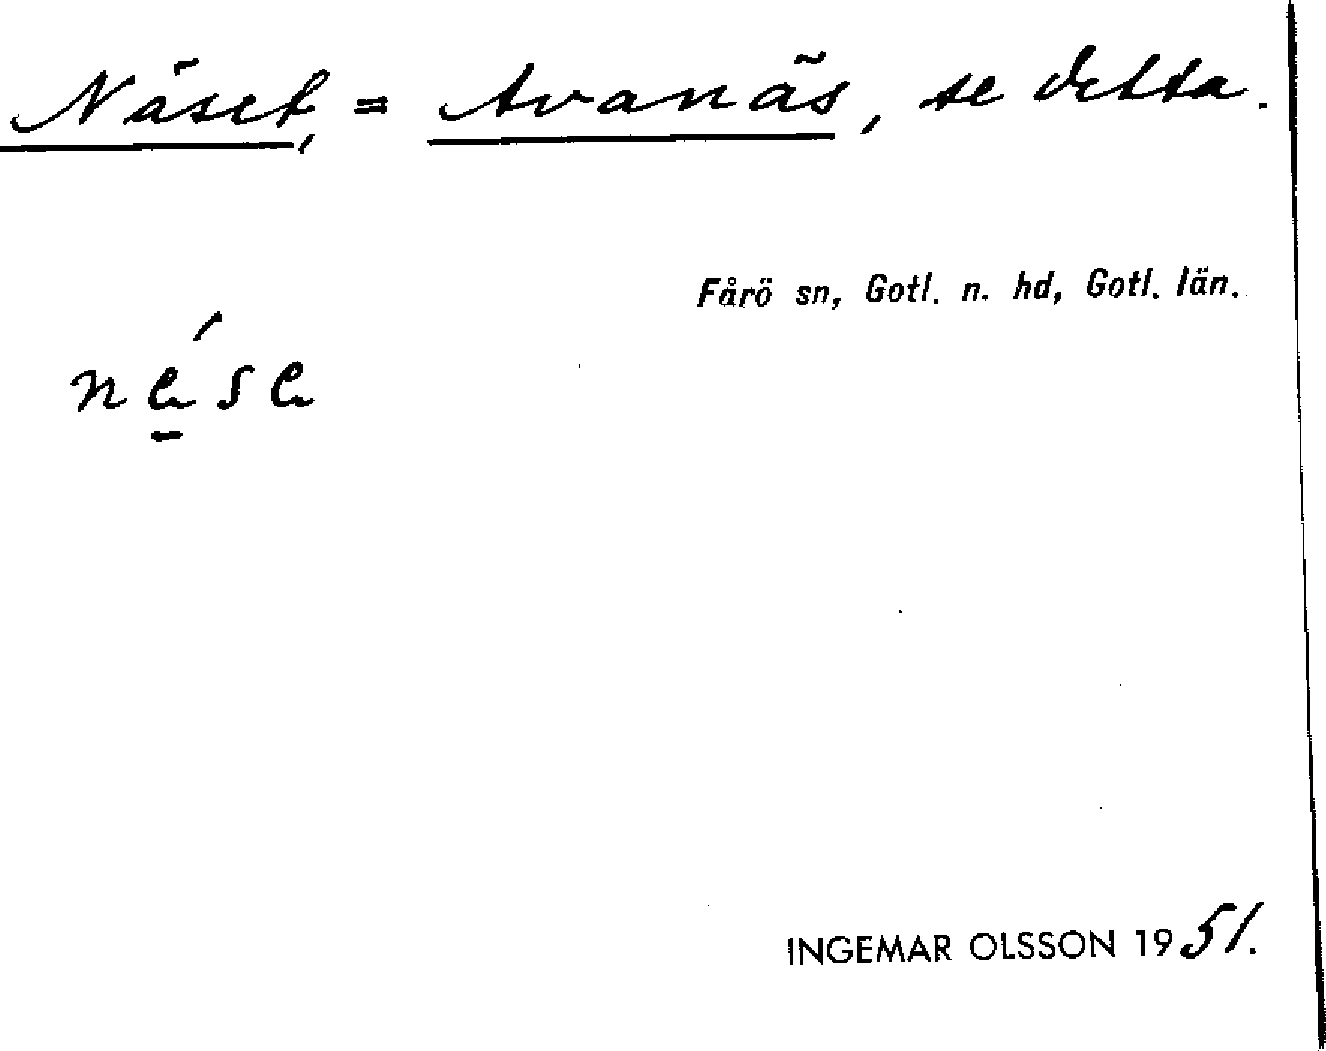 Näset, = Avanäs, se detta.
Fårö sn, Gotl. n. hd, Gotl. län.
ne̱´se
INGEMAR OLSSON 1951.